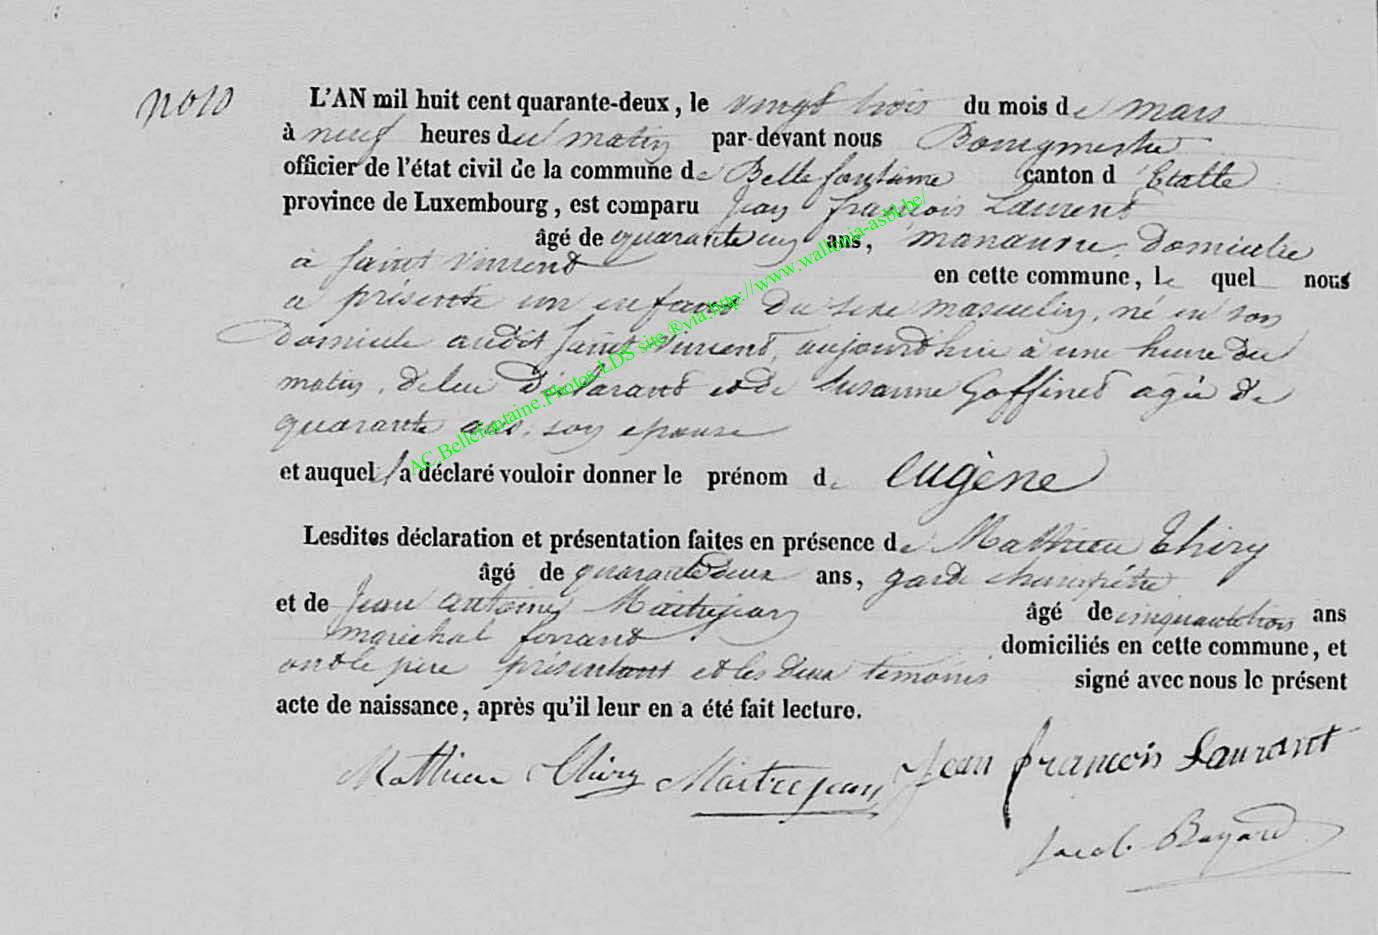 no 10
L'AN mil huit cent quarante-deux, le vingt trois du mois de mars
à neuf heures du matin par-devant nous Bourgmestre
officier de l'état civil de la commune de Bellefontaine canton d'Etalle
province de Luxembourg, est comparu Jean françois Laurent
âgé de quarante un ans, manœuvre, domicilié
à Saint Vincent en cette commune, le quel nous
a présenté un enfant du sexe masculin, né en son
domicile audit Saint Vincent, aujourd'huie à une heure du
matin, de lui déclarant et de Susanne Goffinet agée de
quarante ans, son epouse
et auquel il a déclaré vouloir donner le prénom de Eugène
Lesdites déclaration et présentation faites en présence de Mathieu Thiry
âgé de quarante deux ans, garde champêtre
et de Jean antoine Maitrejean âgé de cinquante trois ans
maréchal ferrant domiciliés en cette commune, et
ont le père présentant et les deux temoins signé avec nous le présent
acte de naissance, après qu'il leur en a été fait lecture.
Mathieu Thiry Maitrejean Jean françois Laurant
Jacob Bayard
AC.Bellefontaine.Photos LDS site ®via:http://www.wallonia-asbl.be/